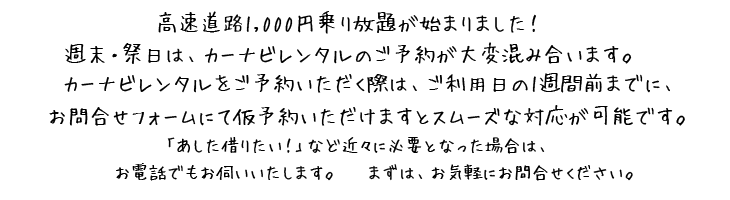 高速道路1,000円乗り放題が始まりました！
週末・祭日は、カーナビレンタルのご予約が大変混み合います。
カーナビレンタルをご予約いただく際は、ご利用日の1週間前までに、
お問合せフォームにて仮予約いただけますとスムーズな対応が可能です。
「あした借りたい！」など近々に必要となった場合は、
お電話でもお伺いいたします。　まずは、お気軽にお問合せください。